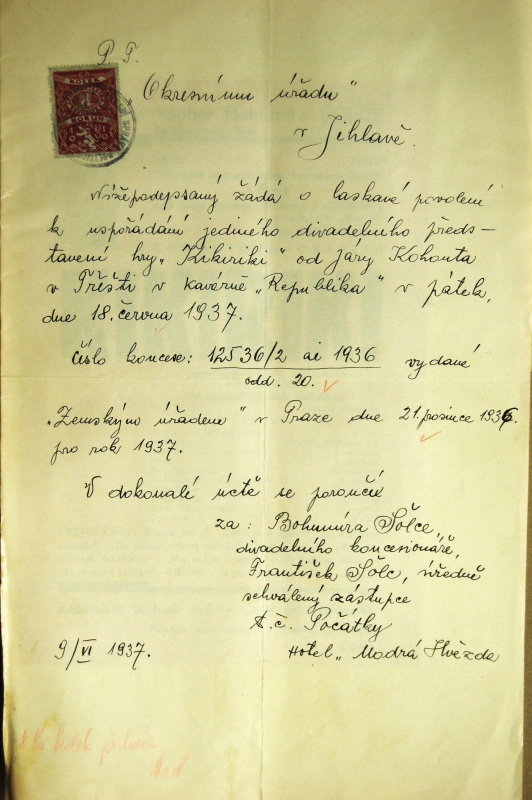 P. T.
KOLEK
1
KORUN
„Okresnímu úřadu"
v Jihlavě.
Nížepodepsaný žádá o laskavé povolení
k uspořádání jediného divadelního předs-
tavení hry „Kikiriki" od Járy Kohouta
v Třešti v kavárně „Republika" v pátek,
dne 18. června 1937.
Číslo koncese: 12536/2 ai 1936 vydané
odd. 20.
„Zemským úřadem" v Praze dne 21. prosince 1936
pro rok 1937.
V dokonalé úctě se poroučí
za: Bohumíra Šolce,
divadelního koncesionáře,
František Šolc, úředně
schválený zástupce
t. č. Počátky
9/VI 1937. Hotel „Modrá Hvězda
kolek